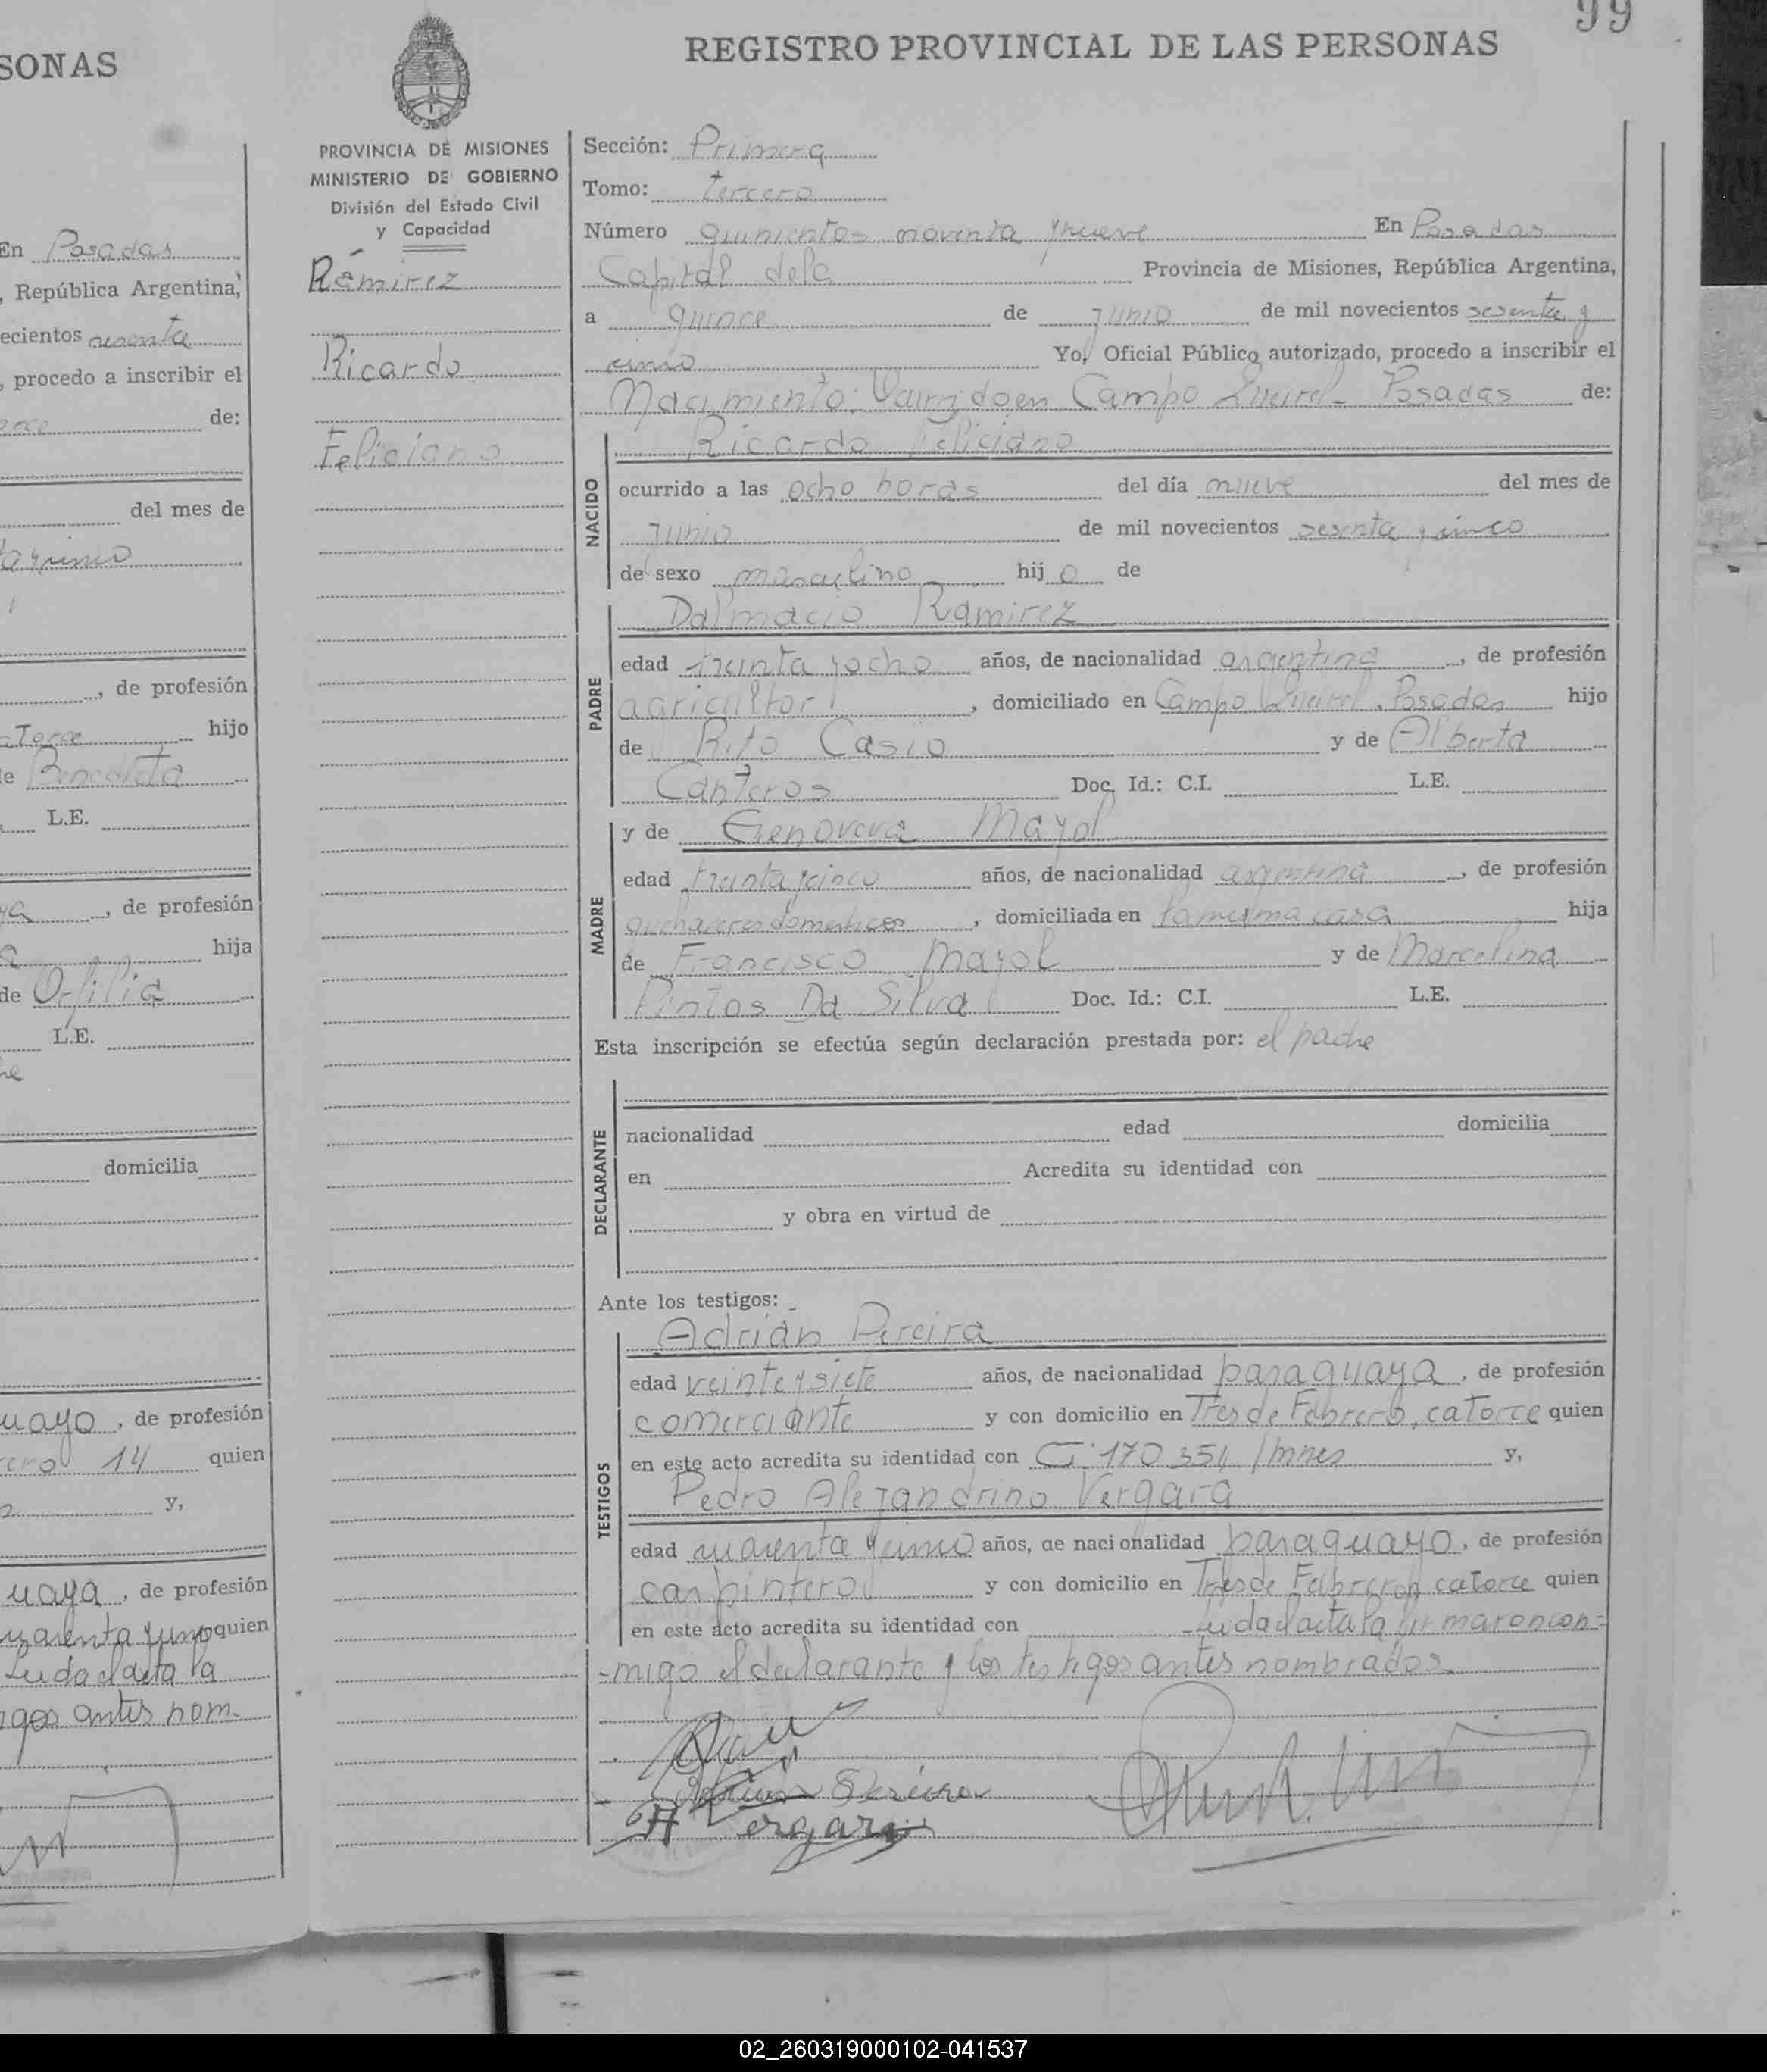 99
SONAS
REGISTRO PROVINCIAL DE LAS PERSONAS
En Posadas
, República Argentina,
ecientos sesenta
, procedo a inscribir el
de:
del mes de
, de profesión
hijo
de Benedicta
L.E.
, de profesión
hija
de Orfilia
L.E.
domicilia
uayo, de profesión
14 quien
y,
uaya, de profesión
quien
Leida el acta la
antes nom-
PROVINCIA DE MISIONES
MINISTERIO DE GOBIERNO
División del Estado Civil
y Capacidad
Ramirez
Ricardo
Feliciano
Sección: Primera
Tomo: tercero
Número quinientos noventa y nueve En Posadas
Capital de la Provincia de Misiones, República Argentina,
a quince de junio de mil novecientos sesenta y
cinco Yo, Oficial Público autorizado, procedo a inscribir el
Nacimiento: Ocurrido en Campo Posadas de:
Ricardo Feliciano
NACIDO
ocurrido a las ocho horas del día nueve del mes de
junio de mil novecientos sesenta y cinco
de sexo masculino hijo de
PADRE
Dalmacio Ramirez
edad treinta y ocho años, de nacionalidad argentina, de profesión
agricultor, domiciliado en Campo Posadas hijo
de Rito Casio y de Alberta
Canteros Doc. Id.: C.I. L.E.
MADRE
y de Genoveva Mayol
edad treinta y cinco años, de nacionalidad argentina, de profesión
quehaceres domesticos, domiciliada en la misma casa hija
de Francisco Mayol y de Marcelina
Pintos Da Silva Doc. Id.: C.I. L.E.
Esta inscripción se efectúa según declaración prestada por: el padre
DECLARANTE
nacionalidad edad domicilia
en Acredita su identidad con
y obra en virtud de
Ante los testigos:
TESTIGOS
Adrián Pereira
edad veinte y siete años, de nacionalidad paraguaya, de profesión
comerciante y con domicilio en Tres de Febrero, catorce quien
en este acto acredita su identidad con C.I. 170.354 /mnes y,
Pedro Alejandrino Vergara
edad cuarenta y uno años, de nacionalidad paraguayo, de profesión
carpintero y con domicilio en Tres de Febrero catorce quien
en este acto acredita su identidad con Leida el acta la firmaron con=
=migo el declarante y los testigos antes nombrados
Adrian Pereira
Vergara
02_260319000102-041537